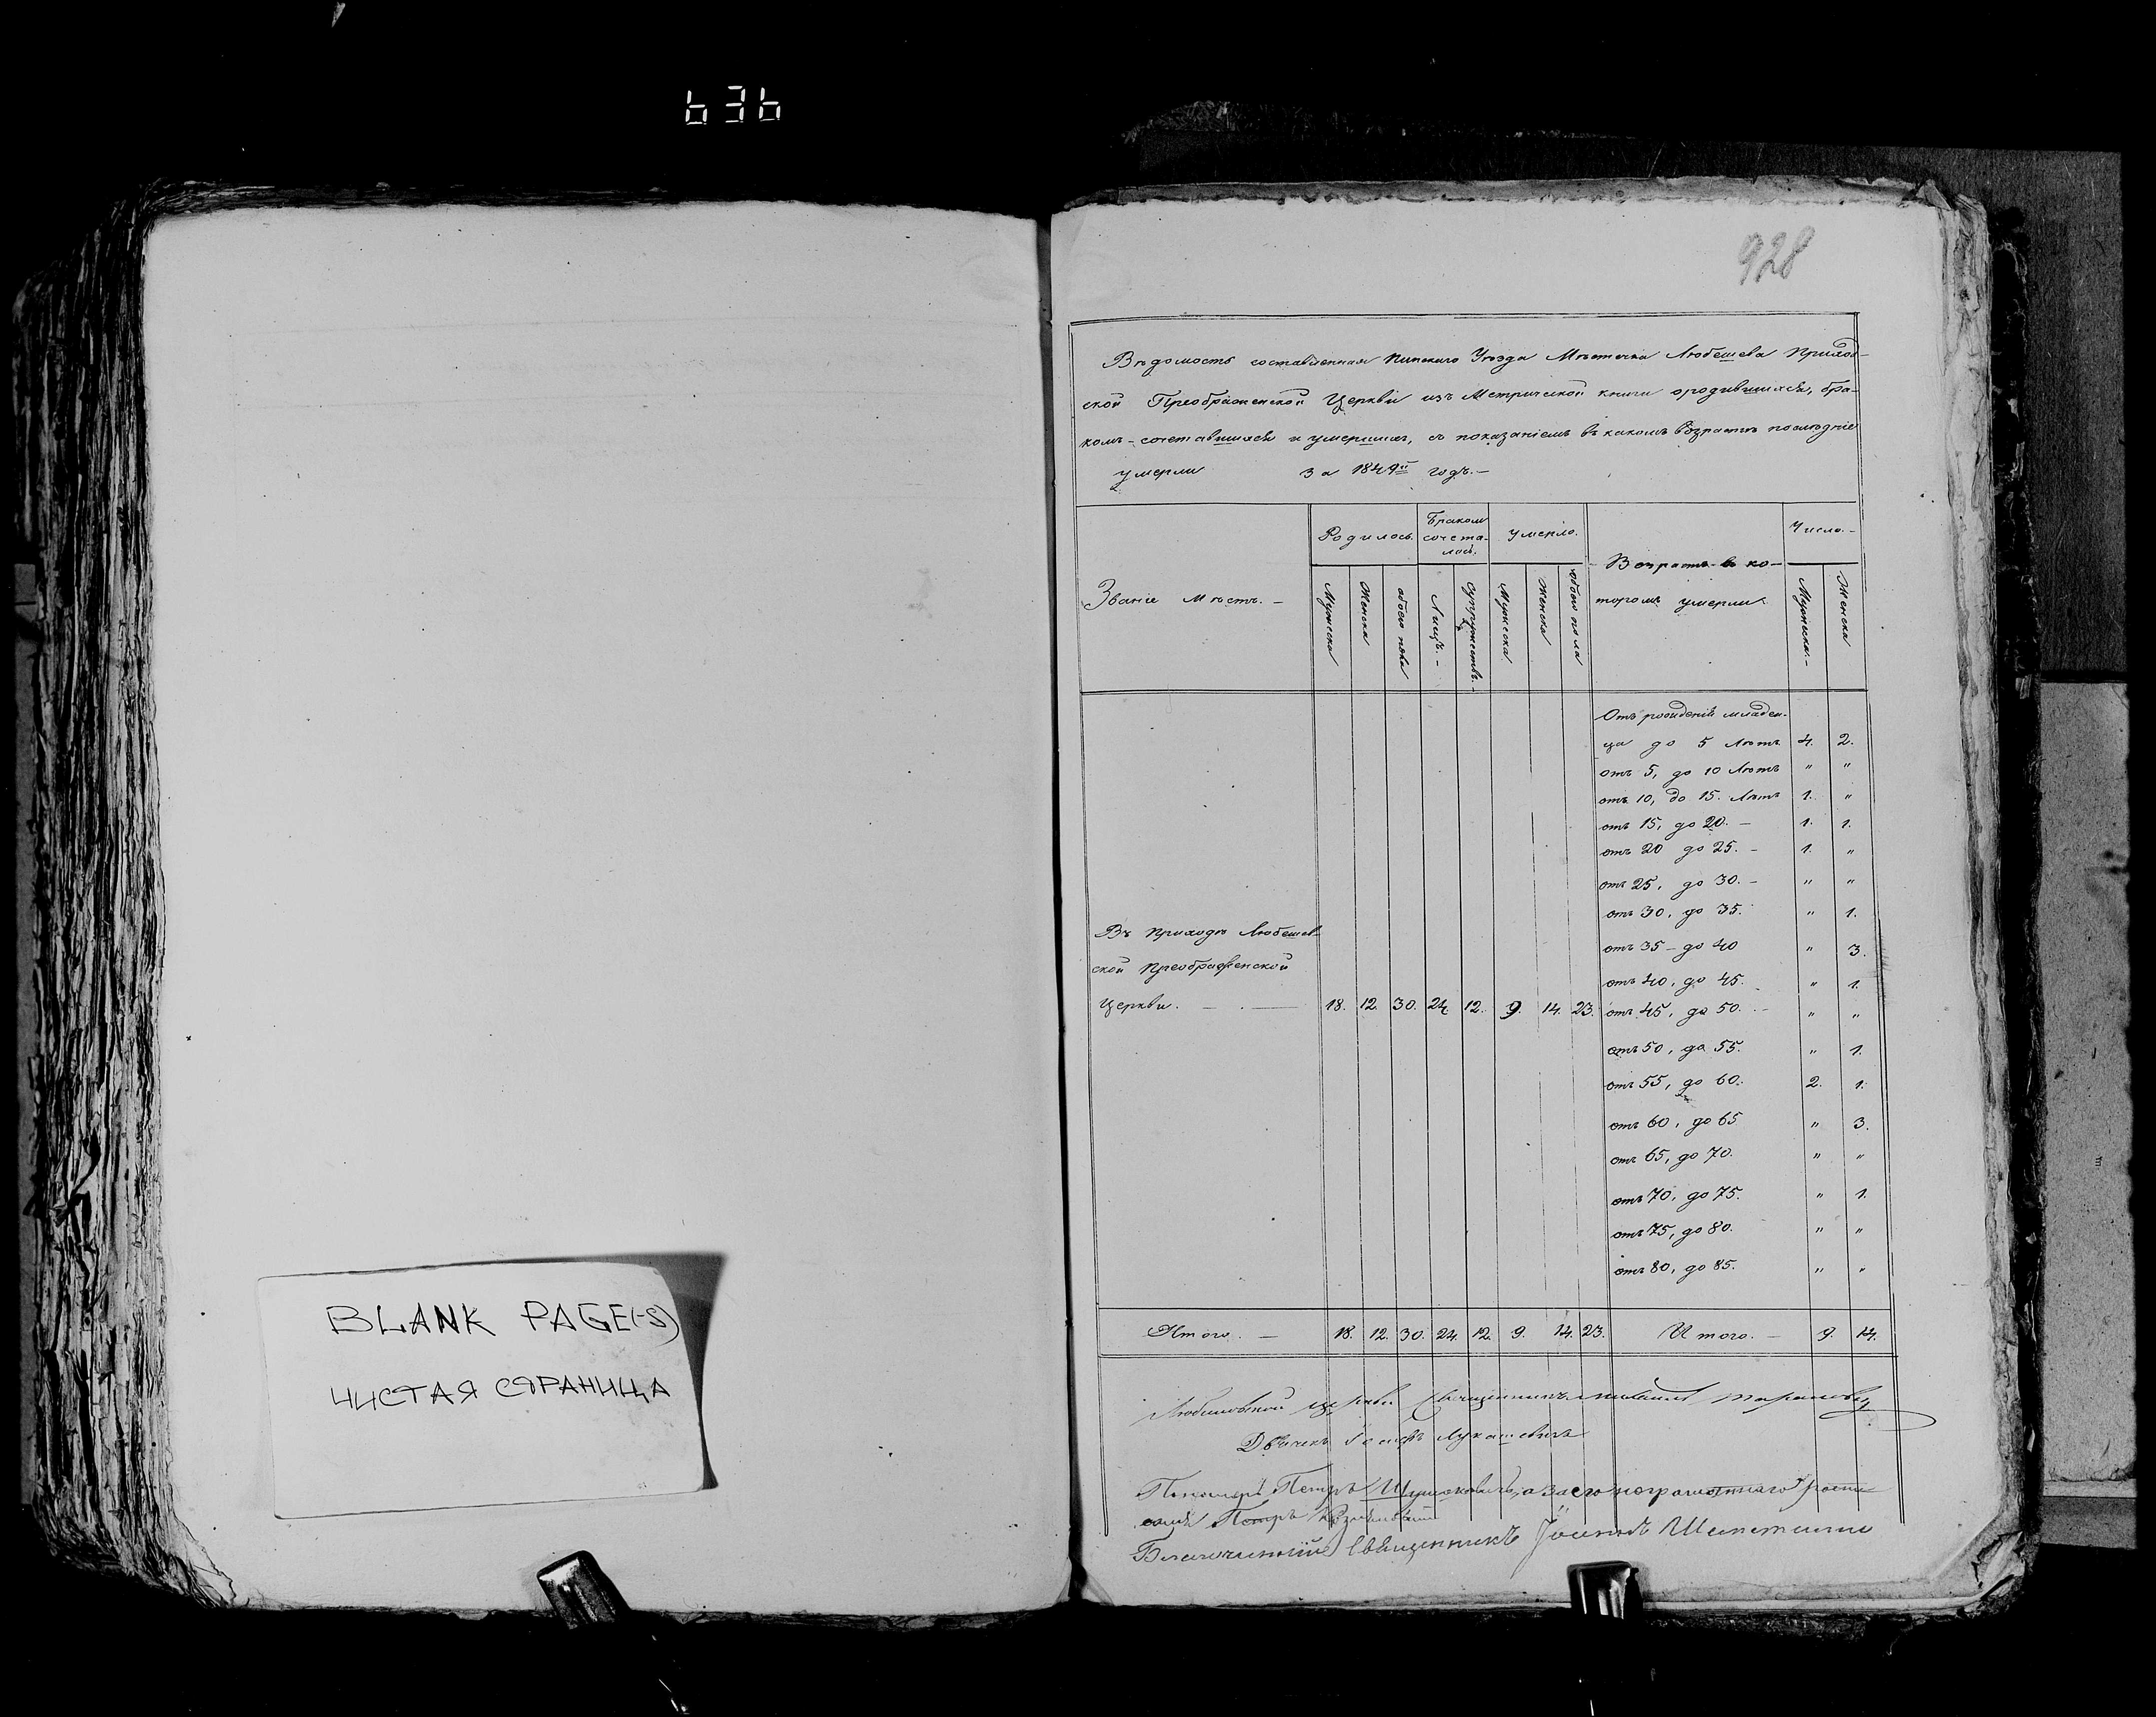 636
928
Вѣдомость составленная Пинскаго Уѣзда Мѣстечка Любешева Приход-
ской Преображенской Церкви изъ Метрической книги ородившихся, бра-
комъ-сочетавшихся и умершихъ, съ показаніемъ въ какомъ возрастѣ послѣдніе
умерли за 1849й годъ.-
Званіе мѣстъ. -
Родилось.
Мужеска
Женска
обоего пола
Бракомъ
сочета-
лось.
Лицъ. -
Супружествъ. -
Умерло.
Мужеска
Женска
обоего пола
Возрастъ въ ко-
торомъ умерли.
Число.-
Мужеска.-
Женска
Отъ рожденія младен-
ца до 5 Лѣтъ 4. 2.
отъ 5, до 10 Лѣтъ " "
отъ 10, до 15. Лѣтъ 1. "
отъ 15, до 20. - 1. 1.
отъ 20 до 25. - 1. "
отъ 25, до 30. - " "
отъ 30, до 35. " 1.
отъ 35 - до 40 " 3.
отъ 40, до 45. " 1.
Въ приходѣ Любешев-
ской Преображенской
Церкви. 18. 12. 30. 24. 12. 9. 14. 23.
отъ 45, до 50. - " "
отъ 50, до 55. " 1.
отъ 55, до 60. 2. 1.
отъ 60, до 65 " 3.
отъ 65, до 70. " "
отъ 70, до 75. " 1.
отъ 75, до 80. " "
отъ 80, до 85. " "
Итого. - 18. 12. 30. 24. 12. 9. 14. 23. Итого. - 9. 14.
церкви Священникъ
Дьячекъ Лукашевичъ
Пономарь Петръ а за его неграмотнаго
Петръ
Благочинный Священникъ
BLANK PAGE(-S)
ЧИСТАЯ СТРАНИЦА